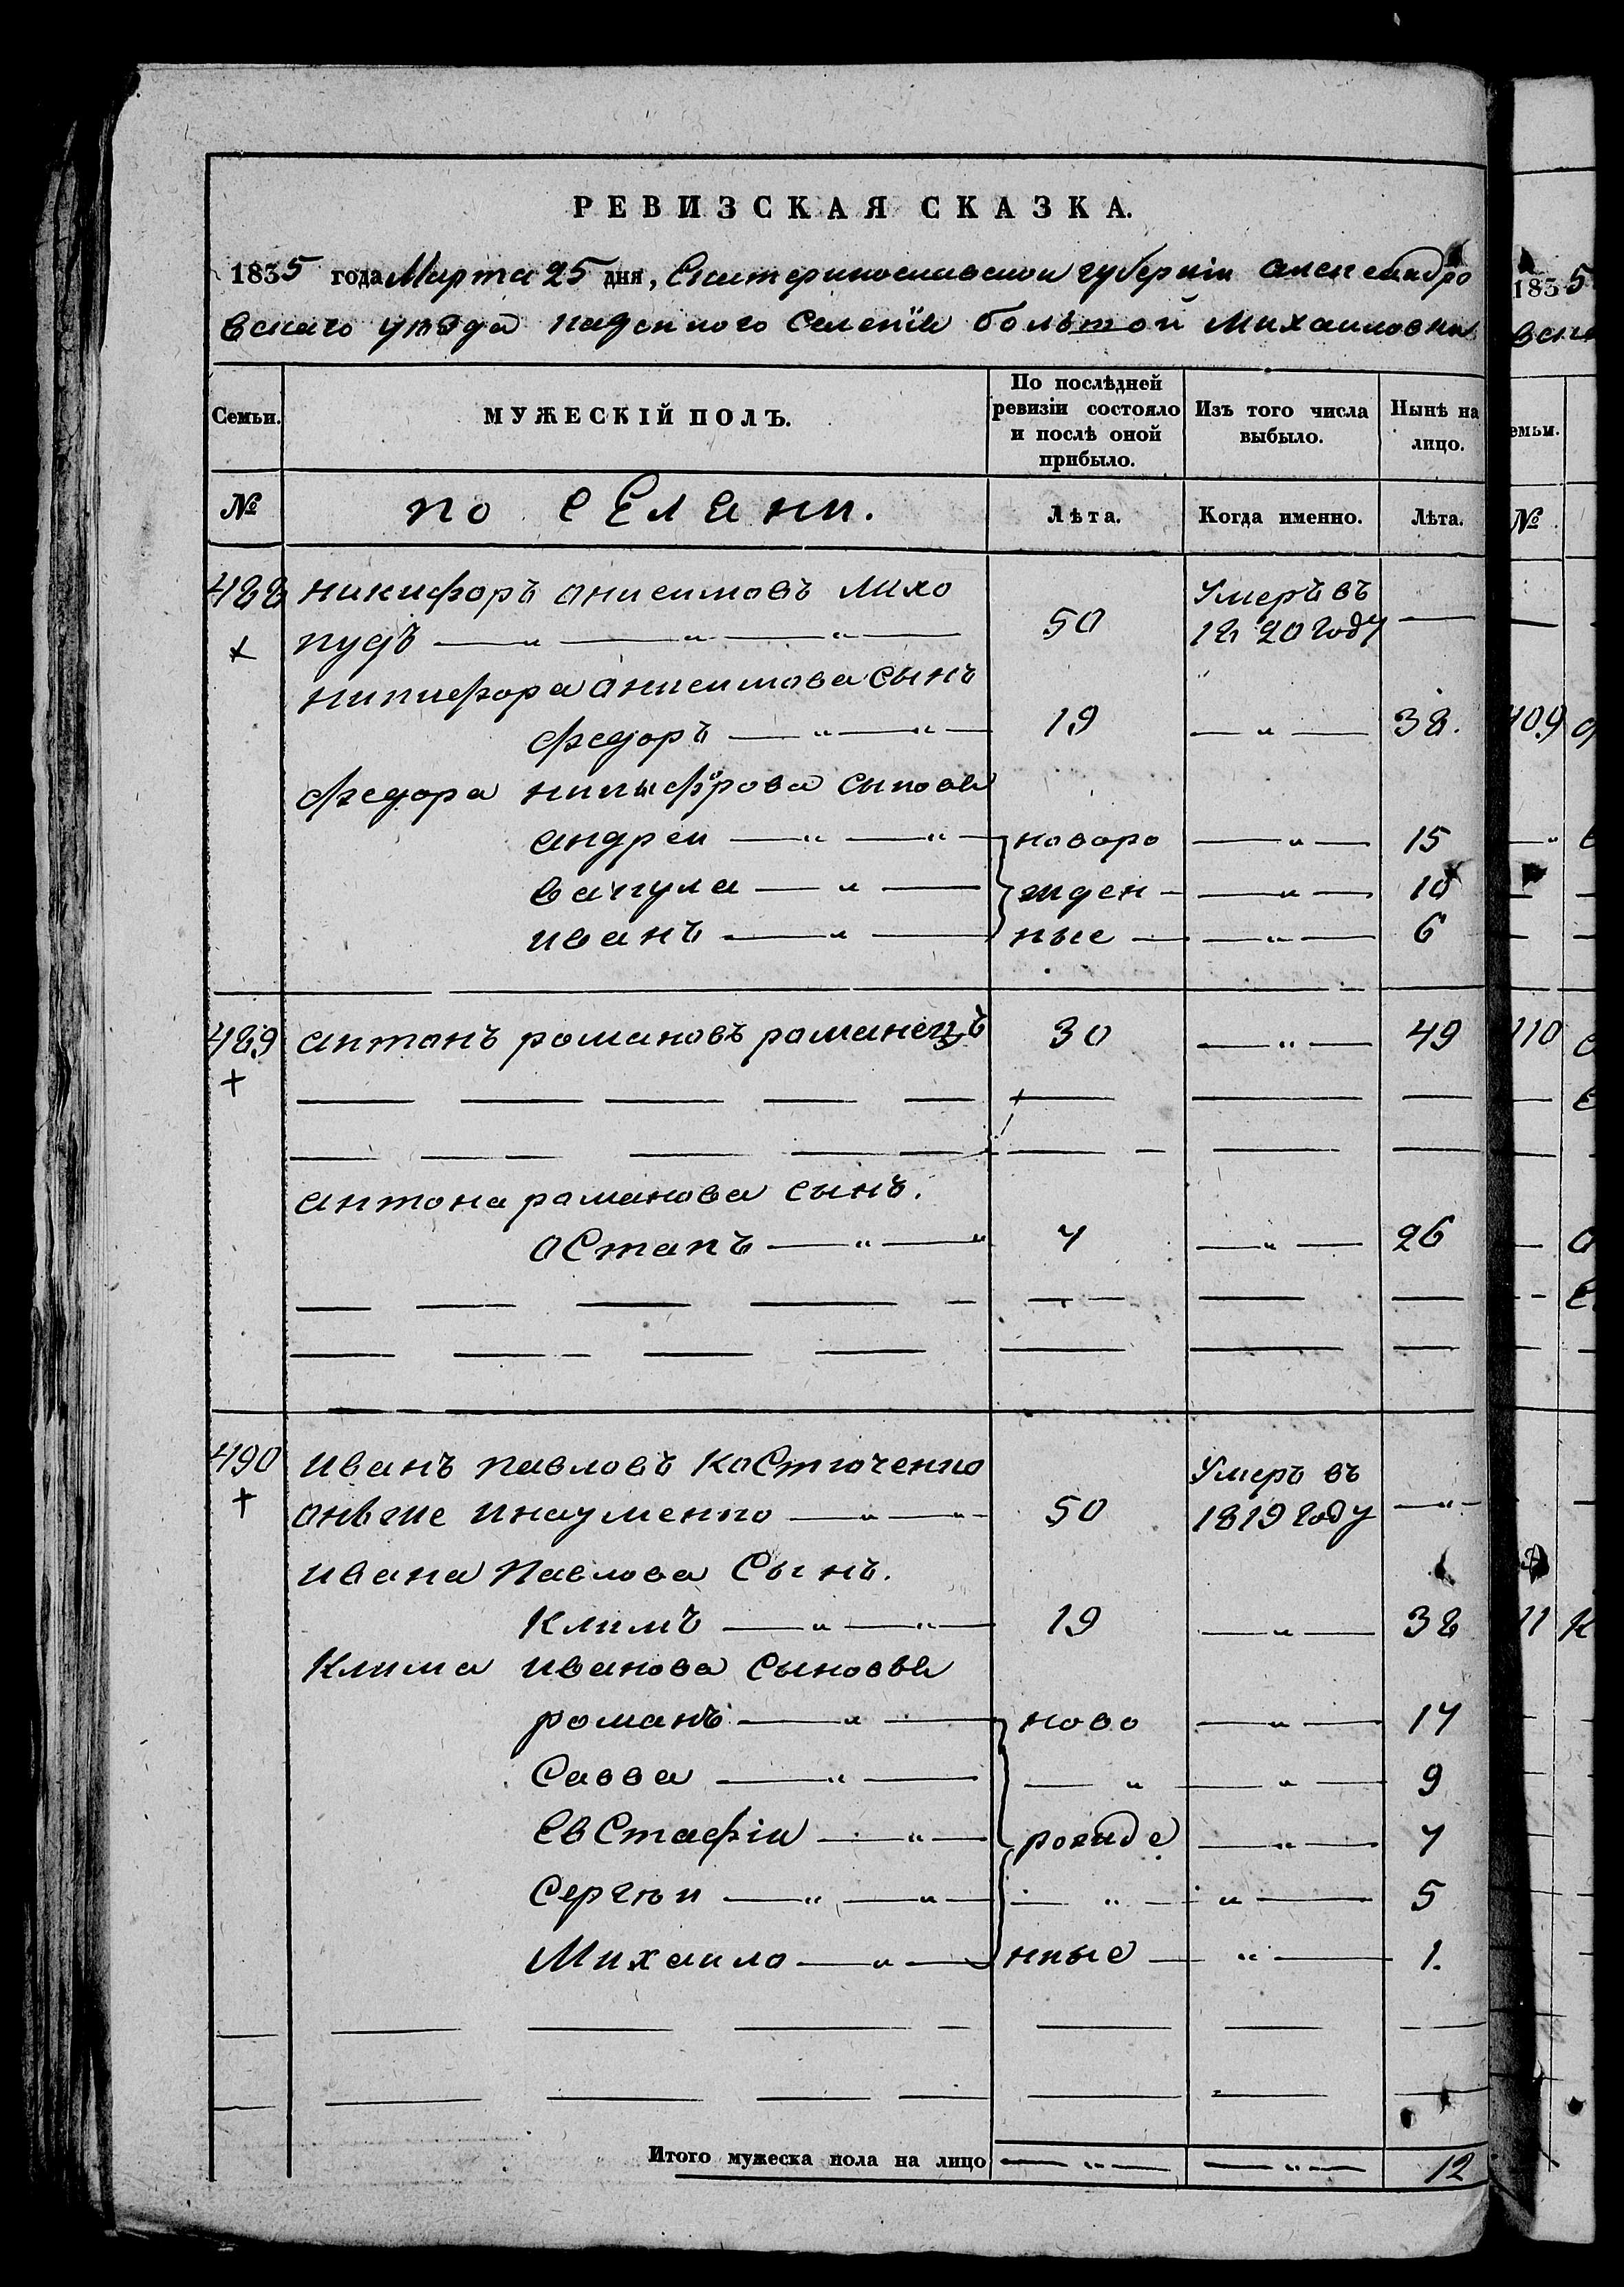 РЕВИЗСКАЯ СКАЗКА.
1835 года Марта 25 дня, Екатеринославской губерніи александро
вскаго уѣзда казенного Селенія большой Михаиловки
Семьи. МУЖЕСКІЙ ПОЛЪ. По послѣдней ревизіи состояло и послѣ оной прибыло. Изъ того числа выбыло. Нынѣ на лицо.
№ поселяни. Лѣта. Когда именно. Лѣта.
488 никифоръ анисимовъ лихо Умеръ въ
пудъ 50 1820 году
никифора анисимова сынъ
федоръ 19 38.
федора никифорова сыновя
андреи новоро 15
вакула жден 10
иванъ ные 6
489 антонъ романовъ романецъ 30 49
антона романова сынъ.
Остапъ 7 26
490 иванъ павловъ Костюченко Умеръ въ
онъже инауменко 50 1819 году
ивана Павлова Сынъ.
Климъ 19 38
Клима иванова Сыновья
романъ ново 17
Савва 9
Евстафіи рожде 7
Сергѣи 5
Михаило нные 1.
Итого мужеска пола на лицо 12
1835
вска
емьи.
№
409
110
11 К